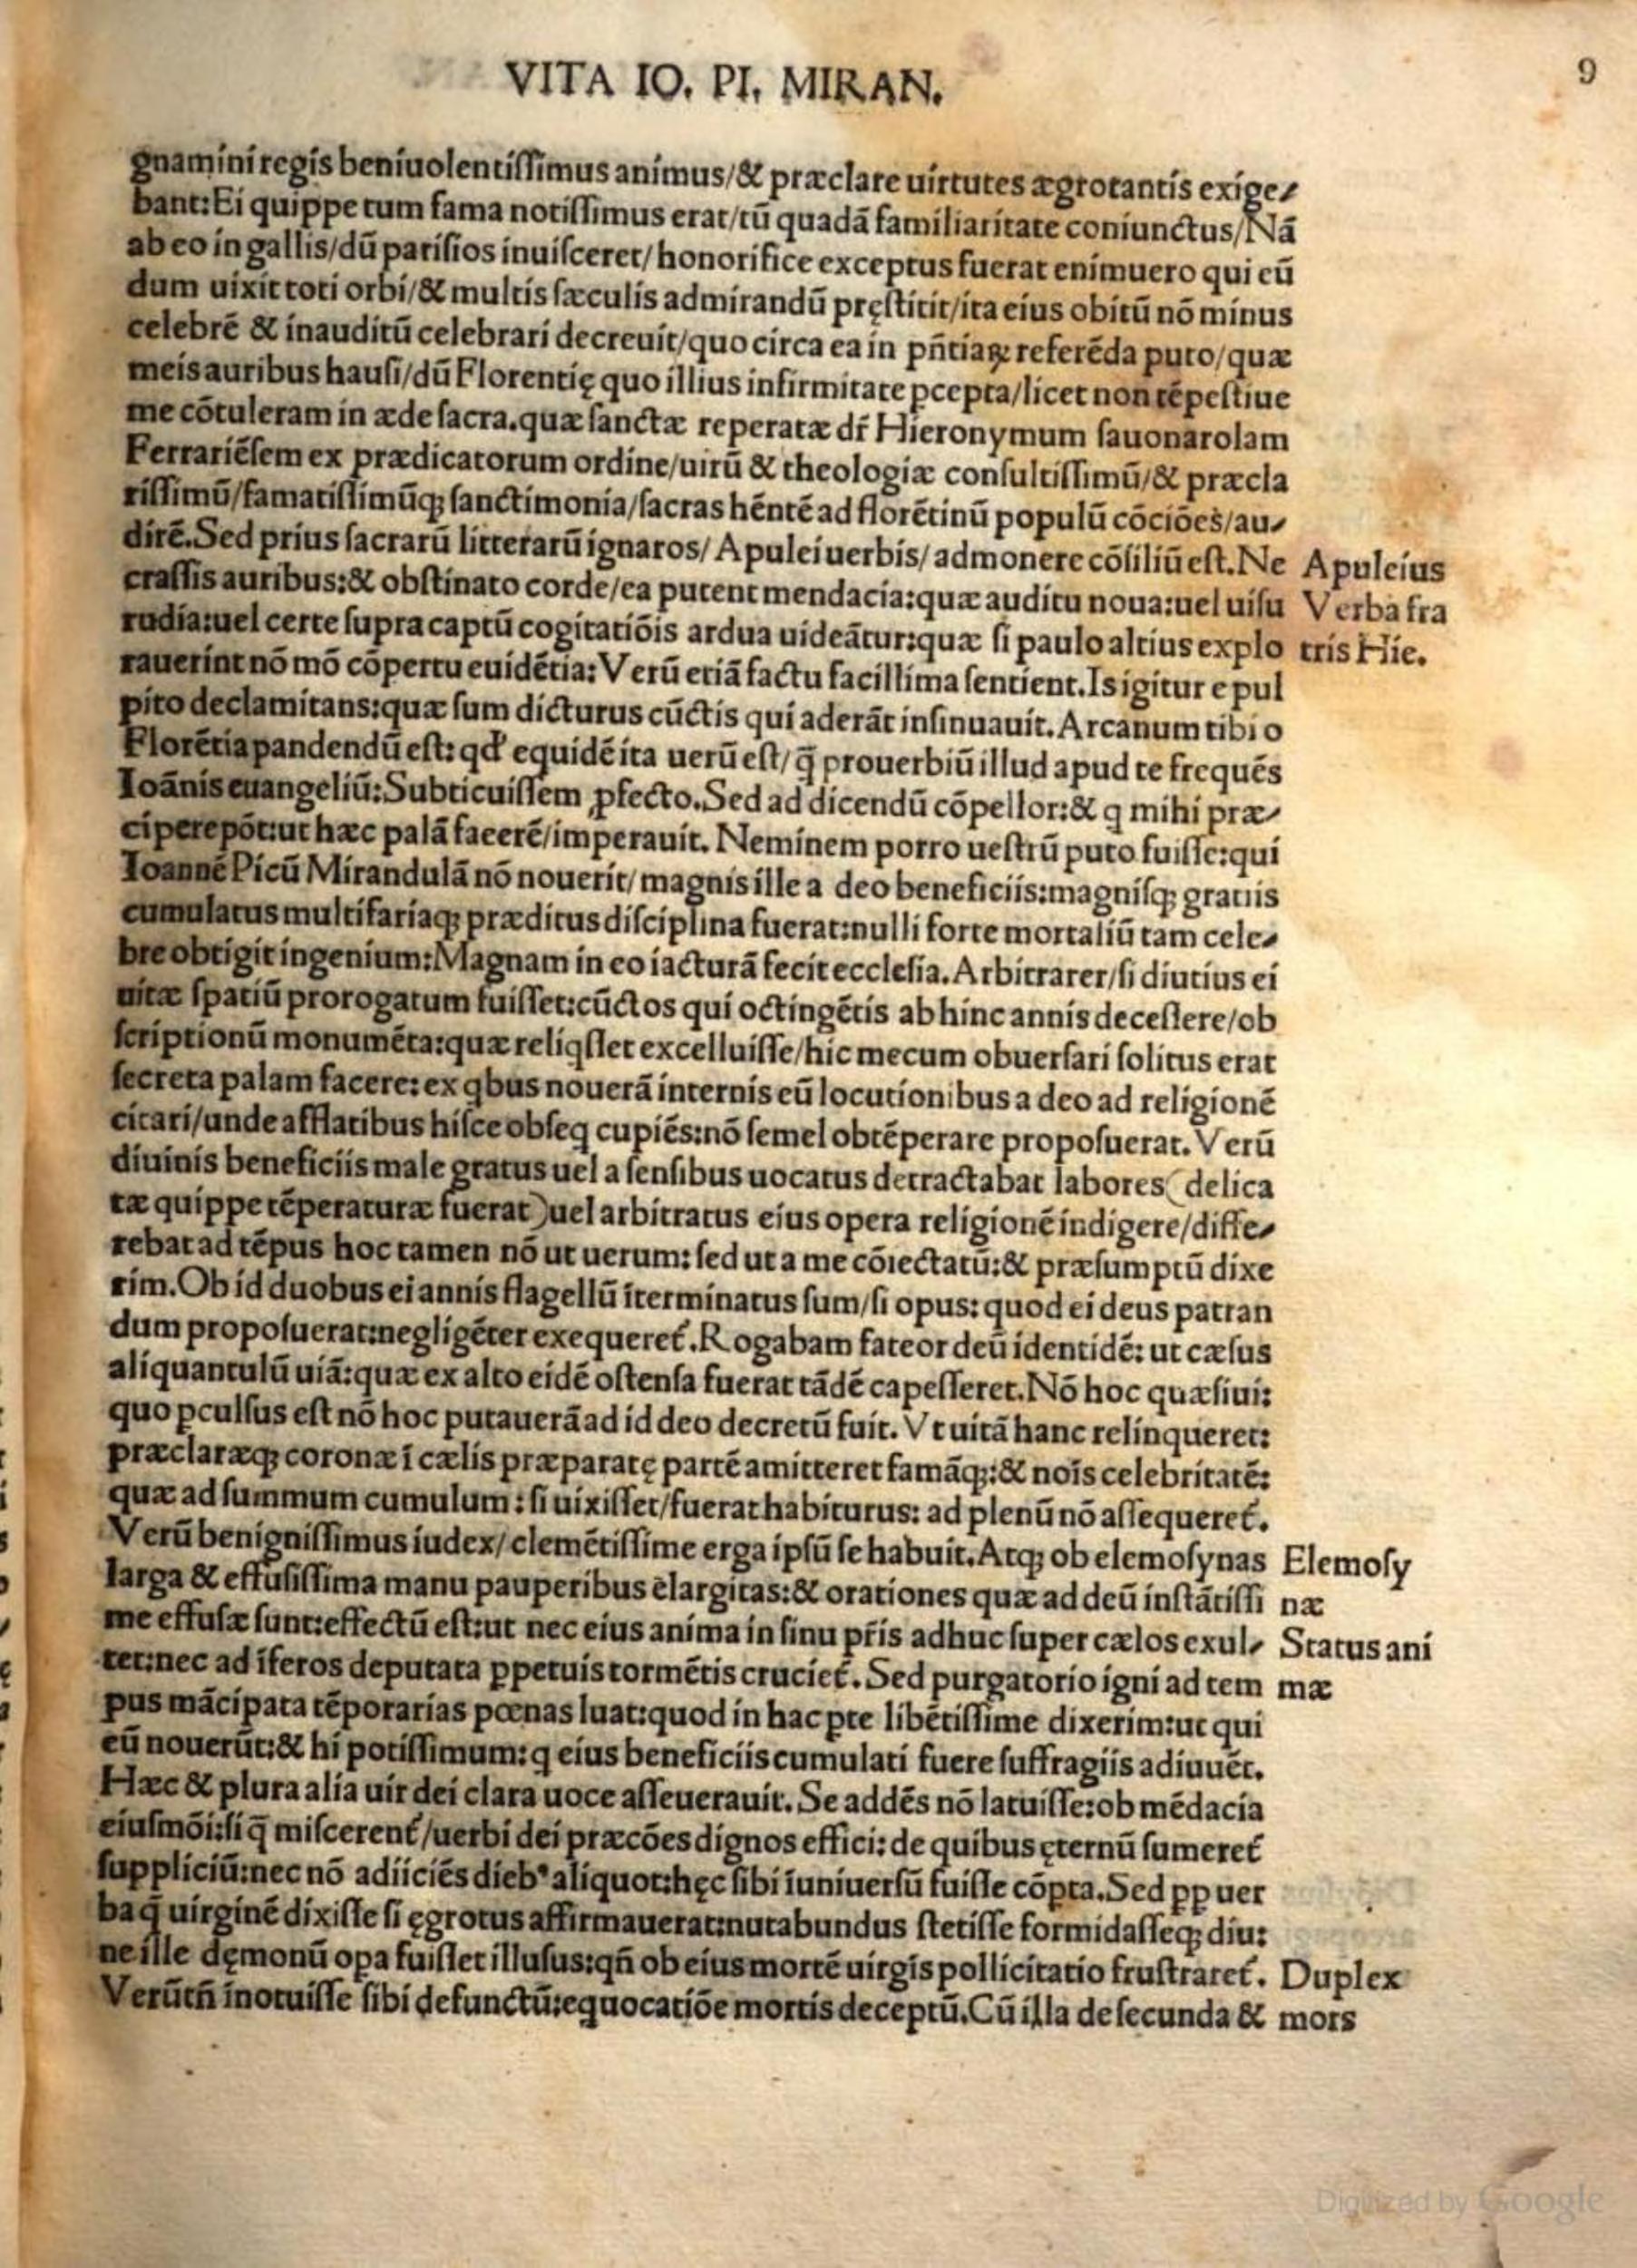 VITA IO. PI. MIRAN.
9
gnamini regis beniuolentiſſimus animus/& præclare uirtutes ægrotantis exige-
bant: Ei quippe tum fama notiſſimus erat/tū quadā familiaritate coniunctus/Nā
ab eo in gallis/dū pariſios inuiſceret/honorifice exceptus fuerat enimuero qui eū
dum uixit toti orbi/& multis ſæculis admirandū pręſtitit/ita eius obitū nō minus
celebrē & inauditū celebrari decreuit/quo circa ea in pn̄tiaꝝ referēda puto/quæ
meis auribus hauſi/dū Florentię quo illius infirmitate ꝑcepta/licet non tēpeſtiue
me cōtuleram in æde ſacra.quæ ſanctæ reperatæ dr̄ Hieronymum ſauonarolam
Ferrariēſem ex prædicatorum ordine/uirū & theologiæ conſultiſſimū/& præcla
riſſimū/famatiſſimūqꝫ ſanctimonia/ſacras hēntē ad florētinū populū cōciōes/au-
dirē.Sed prius ſacrarū litterarū ignaros/Apulei uerbis/admonere cōſiliū eſt.Ne Apuleius
craſſis auribus:& obſtinato corde/ea putent mendacia:quæ auditu noua:uel uiſu Verba fra
rudia:uel certe ſupra captū cogitatiōis ardua uideātur:quæ ſi paulo altius explo tris Hie.
rauerint nō mō cōpertu euidētia: Verū etiā factu facillima ſentient.Is igitur e pul
pito declamitans:quæ ſum dicturus cūctis qui aderāt inſinuauit.Arcanum tibi o
Florētia pandendū eſt: qd' equidē ita uerū eſt/q̄ prouerbiū illud apud te frequēs
Ioānis euangeliū:Subticuiſſem ꝓfecto.Sed ad dicendū cōpellor:& q mihi præ-
cipere pōt:ut hæc palā facerē/imperauit. Neminem porro ueſtrū puto fuiſſe:qui
Ioannē Picū Mirandulā nō nouerit/magnis ille a deo beneficiis:magniſqꝫ gratiis
cumulatus multifariaqꝫ præditus diſciplina fuerat:nulli forte mortaliū tam cele-
bre obtigit ingenium:Magnam in eo iacturā fecit eccleſia.Arbitrarer/ſi diutius ei
uitæ ſpatiū prorogatum fuiſſet:cūctos qui octingētis ab hinc annis deceſſere/ob
ſcriptionū monumēta:quæ reliqſſet excelluiſſe/hic mecum obuerſari ſolitus erat
ſecreta palam facere: ex qbus nouerā internis eū locutionibus a deo ad religionē
citari/unde afflatibus hiſce obſeq cupiēs:nō ſemel obtēperare propoſuerat. Verū
diuinis beneficiis male gratus uel a ſenſibus uocatus detractabat labores (delica
tæ quippe tēperaturæ fuerat) uel arbitratus eius opera religionē indigere/diffe-
rebat ad tēpus hoc tamen nō ut uerum: ſed ut a me cōiectatū:& præſumptū dixe
rim.Ob id duobus ei annis flagellū īterminatus ſum/ſi opus: quod ei deus patran
dum propoſuerat:negligēter exequeret̄.Rogabam fateor deū identidē: ut cæſus
aliquantulū uiā:quæ ex alto eidē oſtenſa fuerat tādē capeſſeret.Nō hoc quæſiui:
quo ꝑculſus eſt nō hoc putauerā ad id deo decretū fuit. Vt uitā hanc relinqueret:
præclaræqꝫ coronæ ī cælis præparatę partē amitteret famāqꝫ:& noīs celebritatē:
quæ ad ſummum cumulum: ſi uixiſſet/fuerat habiturus: ad plenū nō aſſequeret̄.
Verū benigniſſimus iudex/clemētiſſime erga ipſū ſe habuit.Atqꝫ ob elemoſynas Elemoſy
larga & effuſiſſima manu pauperibus elargitas:& orationes quæ ad deū inſtātiſſi næ
me effuſæ ſunt:effectū eſt:ut nec eius anima in ſinu pr̄is adhuc ſuper cælos exul- Status ani
tet:nec ad īferos deputata ꝑpetuis tormētis cruciet̄. Sed purgatorio igni ad tem mæ
pus mācipata tēporarias pœnas luat:quod in hac ꝑte libētiſſime dixerim:ut qui
eū nouerūt:& hi potiſſimum: q eius beneficiis cumulati fuere ſuffragiis adiuuēt.
Hæc & plura alia uir dei clara uoce aſſeuerauit. Se addēs nō latuiſſe:ob mēdacia
eiuſmōi:ſi q̄ miſcerent̄/uerbi dei præcōes dignos effici: de quibus ęternū ſumeret̄
ſuppliciū:nec nō adiiciēs dieb⁹ aliquot:hęc ſibi īuniuerſū fuiſſe cōꝑta.Sed ꝑꝑ uer
ba q̄ uirginē dixiſſe ſi ęgrotus affirmauerat:nutabundus ſtetiſſe formidaſſeqꝫ diu:
ne ille dęmonū oꝑa fuiſſet illuſus:qn̄ ob eius mortē uirgīs pollicitatio fruſtraret̄. Duplex
Verūtn̄ inotuiſſe ſibi defunctū:equocatiōe mortis deceptū.Cū illa de ſecunda & mors
Digitized by Google